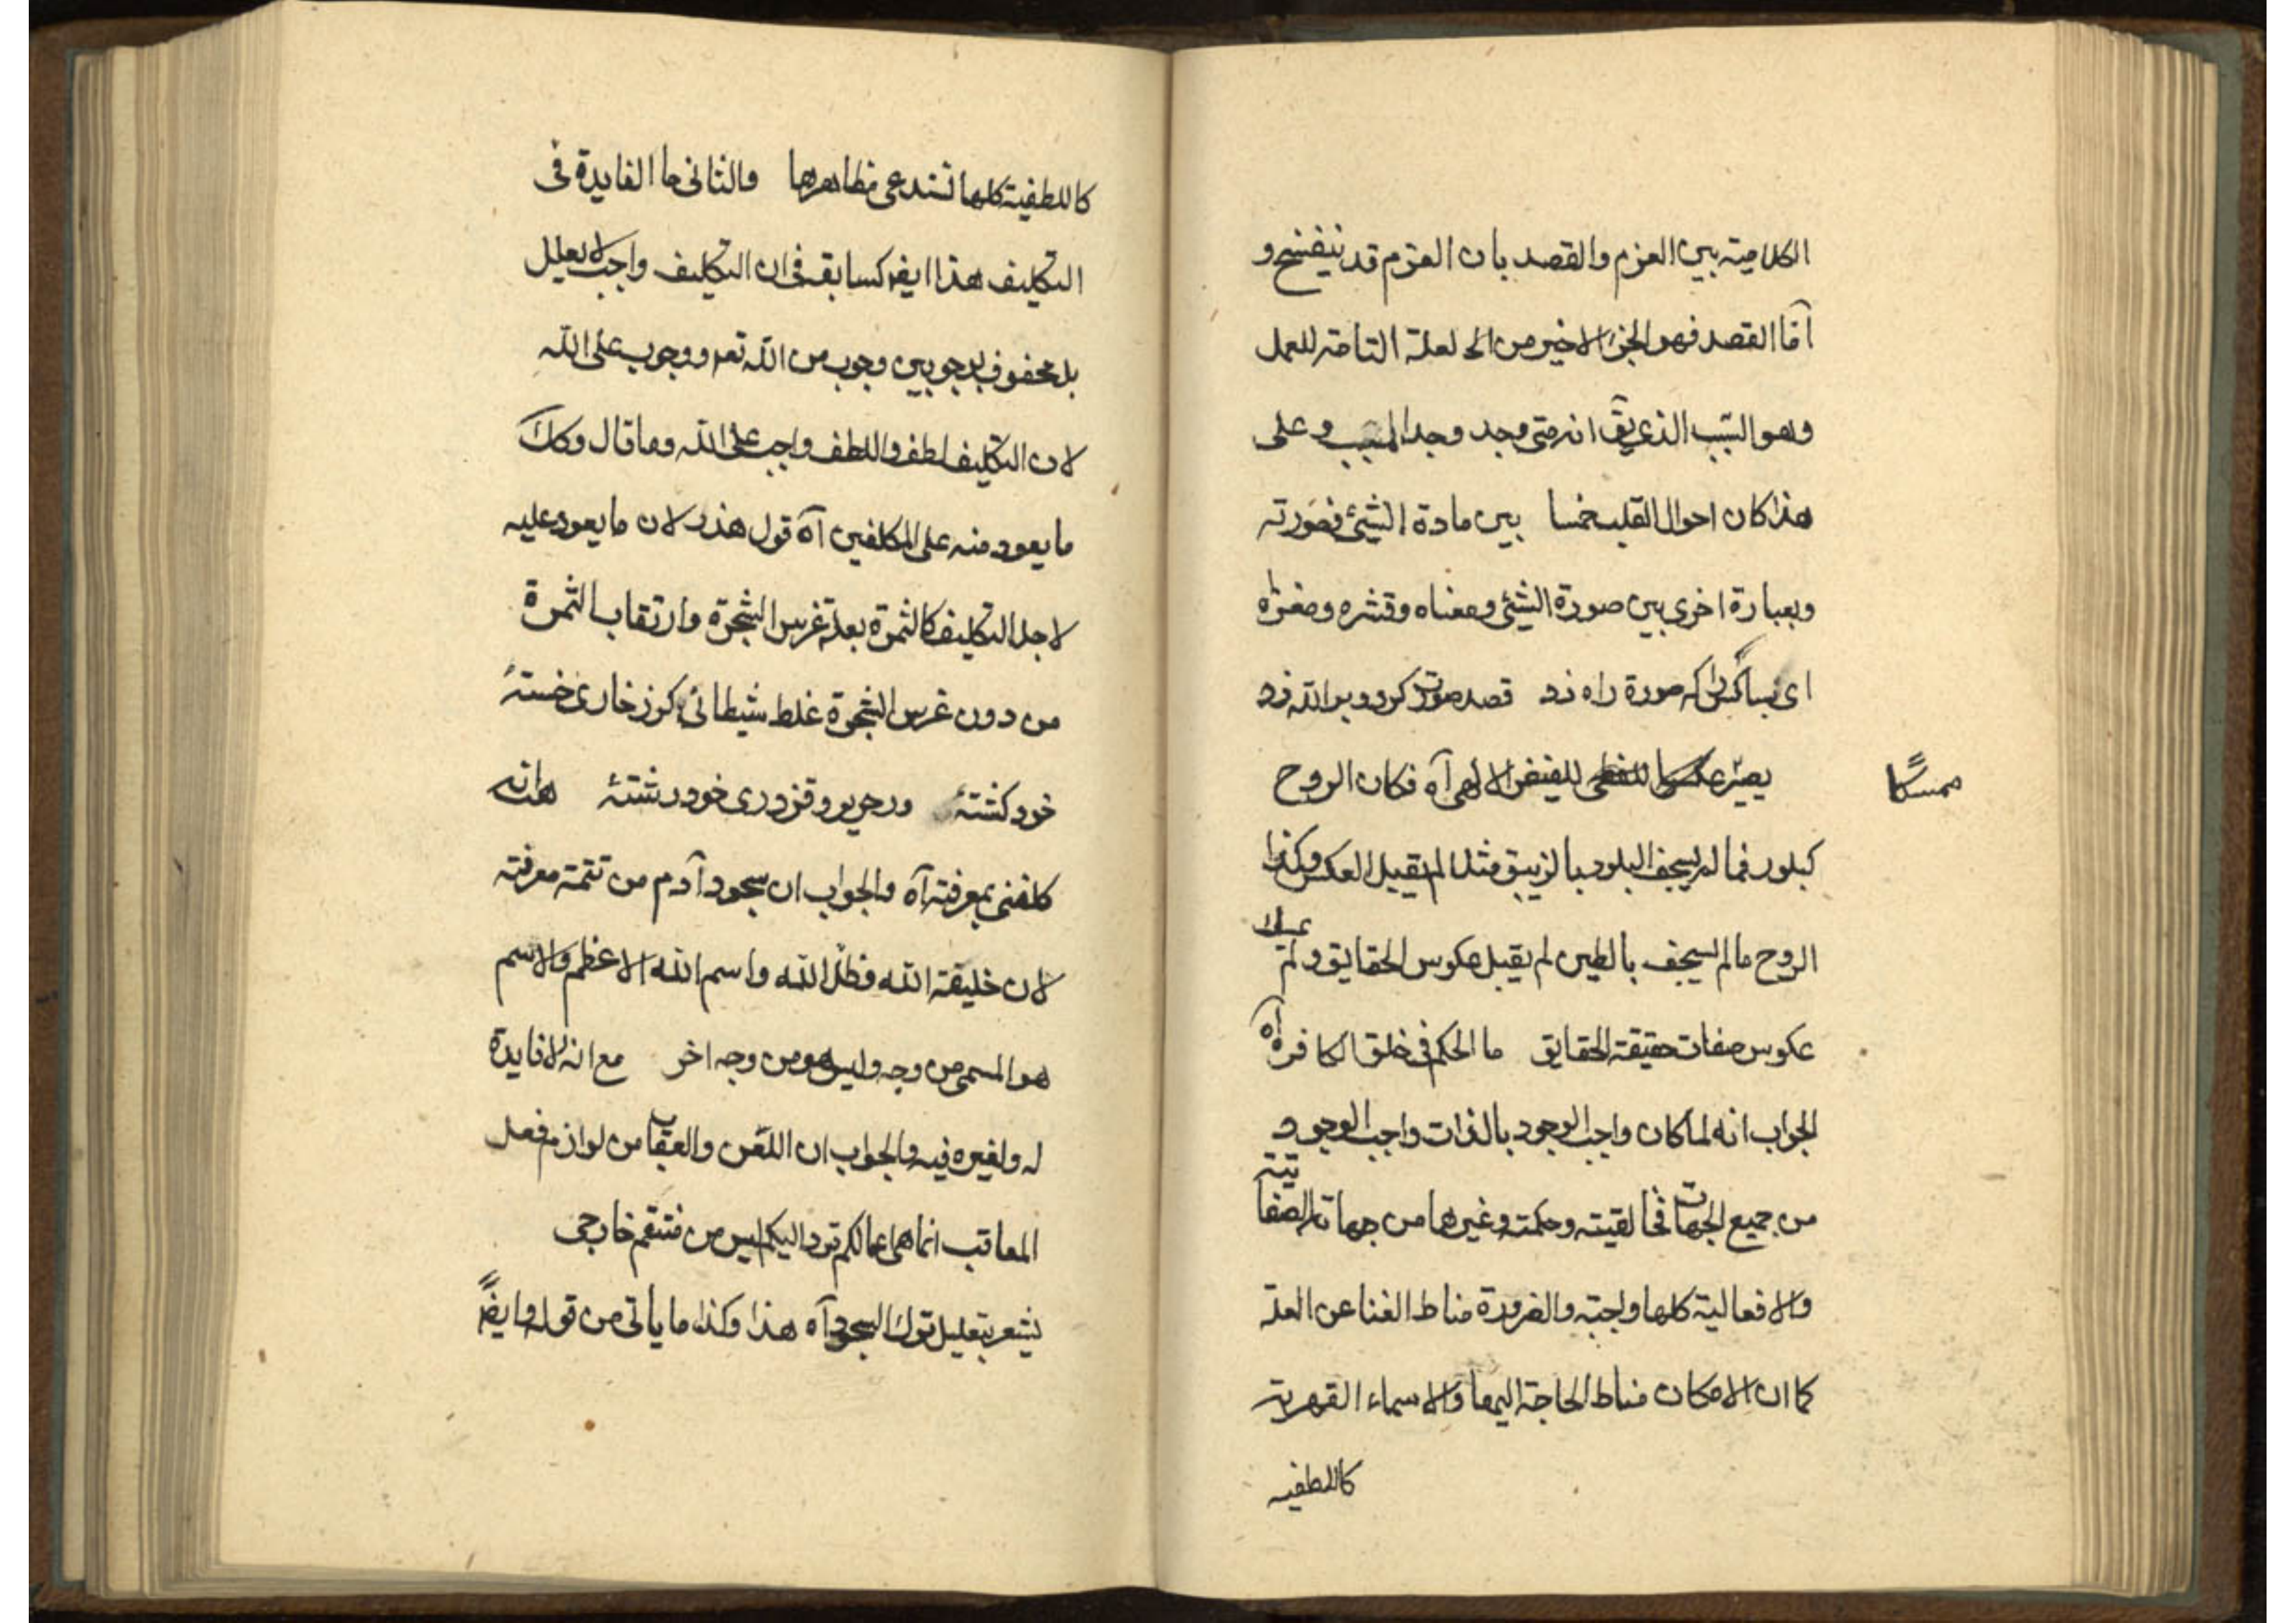 الكلامية بين العزم والقصد بان العزم قد ينفسخ و
امّا القصد فهو الجزء الاخير من العلة التامة للعمل
وهو السّبب الذى يقّ انه متى وجد وجد المسبب وعلى
هذا كان احوال القلب خمسا بين مادة الشيئ وصورته
وبعبارة اخرى بين صورة الشيئ ومعناه وقشره ومغزاه
اى بسا كس را كه صورة راه زد قصد صورت كرد وبر الله زد
يصير للفيض الالهى آه فكان الروح
ممسكا
كبلور فما لم يسجف البلور بالزيبق مثلا لم يقبل العكس وكذا
الروح ما لم يسجف بالطين لم يقبل عكوس الحقايق ولم
عكوس صفات حقيقة الحقايق ما الحكم فى خلق الكافر آه
الجواب انه لما كان واجب الوجود بالذات واجب الوجود
من جميع الجهات فخالقيته وحكمته وغيرها من جهاته الصفاتية
والافعالية كلها واجبة والضرورة مناط الغنا عن العلة
كما ان الامكان مناط الحاجة اليها والاسماء القهرية
كاللطفية
كاللطفية كلها تستدعى مظاهرها والثانى ما الفايدة فى
التكليف هذا ايضا كسابقه فى ان التكليف واجب لا يعلل
بل محفوف بوجوبين وجوب من الله تعم ووجوب على الله
لان التكليف لطف واللطف واجب على الله وما قال وكلّ
ما يعود منه على المكلفين آه قول هذر لان ما يعود عليه
لاجل التكليف كالثمرة بعد غرس الشجرة وارتقاب الثمرة
من دون غرس الشجرة غلط شيطانى كرز خارى خستهٔ
خود كشتهٔ ورحرير و قزدرى خود رشتهٔ
كلفنى بمعرفته آه والجواب ان سجود آدم من تتمة معرفته
لان خليفة الله وظلّ الله واسم الله الاعظم والاسم
هو المسمى من وجه وليس هو من وجه اخر مع انه لا فايدة
له ولغيره فيه والجواب ان اللعن والعقاب من لوازم فعل
المعاقب انما هى اعمالكم ترد اليكم ليس من منتقم خارجى
يشعر بتعليل ترك السجود آه هذا وكذا ما ياتى من قوله وايضًا